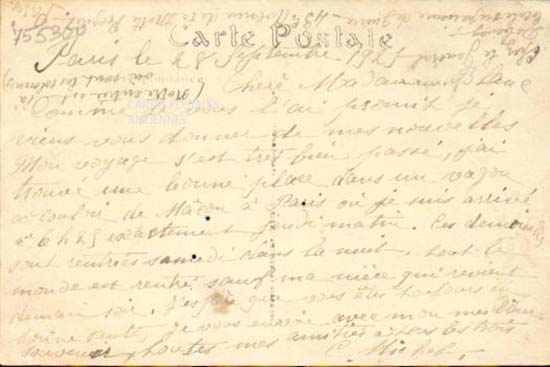 755350
Carte Postale
Paris le 28 Septembre 1925
Chère Madame Blanc
CARTES POSTALES
ANCIENNES
Comme je vous l'ai promit je
viens vous donner de mes nouvelles
Mon voyage s'est très bien passé, j'ai
trouvé une bonne place dans un wagon
à couloir de Mâcon à Paris où je suis arrivé
à 6 h 25 exactement jeudi matin. Ces
sont rentrées samedi dans la nuit, tout le
monde est rentré sauf ma nièce qui revient
demain soir. J'espère que vous êtes toujours en
bonne santé, je vous envoie avec mon meilleur
souvenir toutes mes amitiés à tous les trois
C. Michel.